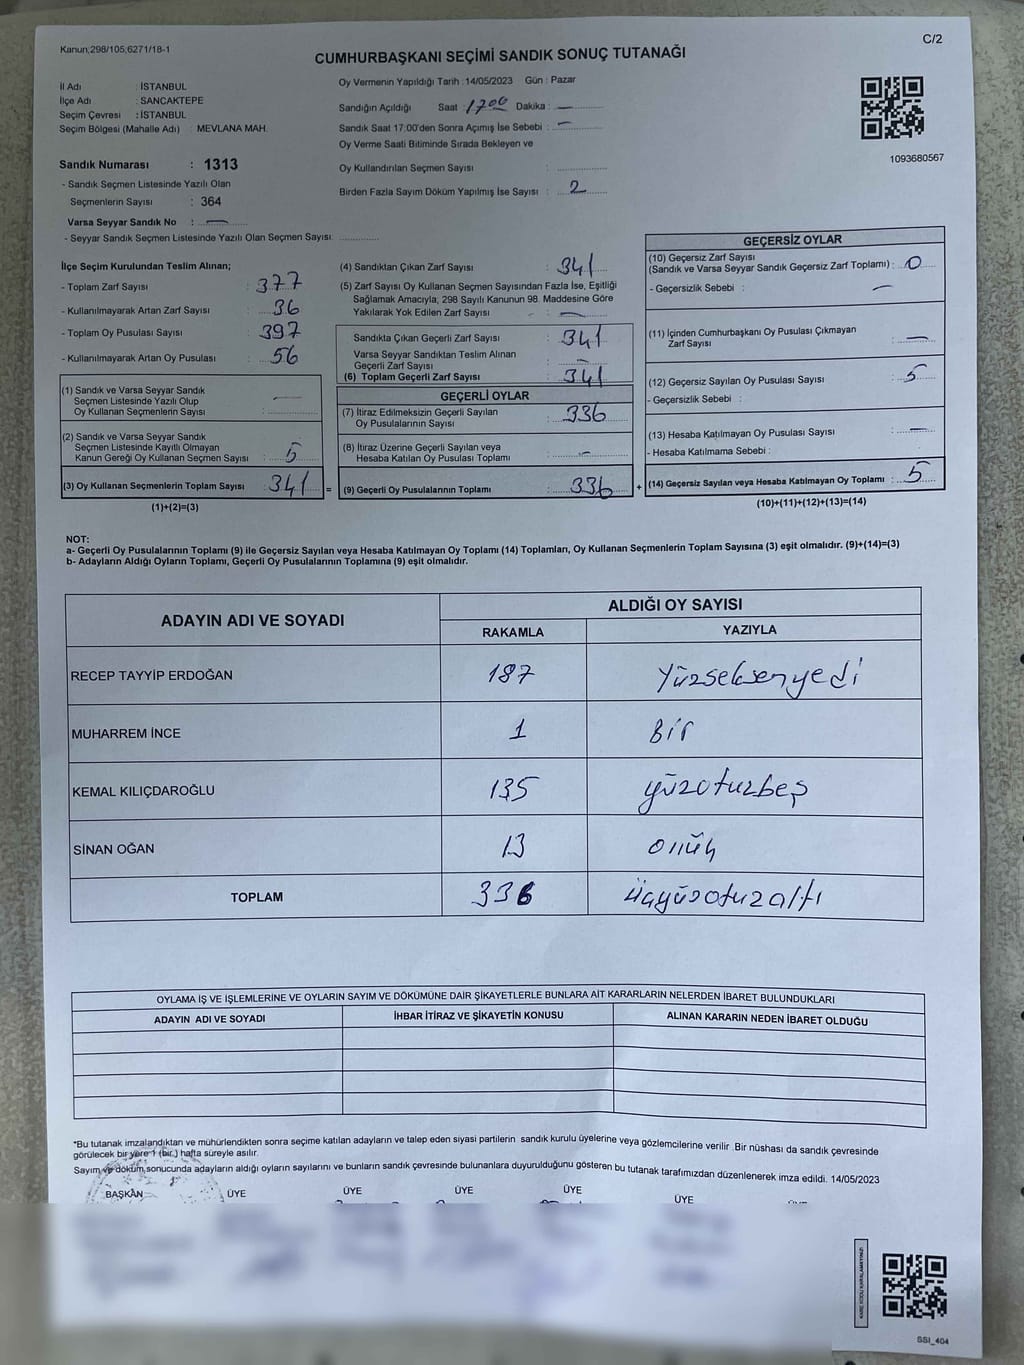 Kanun;298/105;6271/18-1
C/2
CUMHURBAŞKANI SEÇİMİ SANDIK SONUÇ TUTANAĞI
İl Adı : İSTANBUL
İlçe Adı : SANCAKTEPE
Seçim Çevresi : İSTANBUL
Seçim Bölgesi (Mahalle Adı) : MEVLANA MAH.
Sandık Numarası : 1313
- Sandık Seçmen Listesinde Yazılı Olan
Seçmenlerin Sayısı : 364
Varsa Seyyar Sandık No : —
- Seyyar Sandık Seçmen Listesinde Yazılı Olan Seçmen Sayısı:
Oy Vermenin Yapıldığı Tarih :14/05/2023 Gün : Pazar
Sandığın Açıldığı Saat : 1700 Dakika : —
Sandık Saat 17:00'den Sonra Açımış İse Sebebi : —
Oy Verme Saati Bitiminde Sırada Bekleyen ve
Oy Kullandırılan Seçmen Sayısı :
Birden Fazla Sayım Döküm Yapılmış İse Sayısı : 2
1093680567
İlçe Seçim Kurulundan Teslim Alınan;
- Toplam Zarf Sayısı : 377
- Kullanılmayarak Artan Zarf Sayısı : 36
- Toplam Oy Pusulası Sayısı : 397
- Kullanılmayarak Artan Oy Pusulası : 56
(1) Sandık ve Varsa Seyyar Sandık
Seçmen Listesinde Yazılı Olup
Oy Kullanan Seçmenlerin Sayısı : —
(2) Sandık ve Varsa Seyyar Sandık
Seçmen Listesinde Kayıtlı Olmayan
Kanun Gereği Oy Kullanan Seçmen Sayısı : 5
(3) Oy Kullanan Seçmenlerin Toplam Sayısı : 341
(1)+(2)=(3)
(4) Sandıktan Çıkan Zarf Sayısı : 341
(5) Zarf Sayısı Oy Kullanan Seçmen Sayısından Fazla İse, Eşitliği
Sağlamak Amacıyla, 298 Sayılı Kanunun 98. Maddesine Göre
Yakılarak Yok Edilen Zarf Sayısı : —
Sandıkta Çıkan Geçerli Zarf Sayısı : 341
Varsa Seyyar Sandıktan Teslim Alınan
Geçerli Zarf Sayısı : —
(6) Toplam Geçerli Zarf Sayısı : 341
GEÇERLİ OYLAR
(7) İtiraz Edilmeksizin Geçerli Sayılan
Oy Pusulalarının Sayısı : 336
(8) İtiraz Üzerine Geçerli Sayılan veya
Hesaba Katılan Oy Pusulası Toplamı : —
= (9) Geçerli Oy Pusulalarının Toplamı : 336
GEÇERSİZ OYLAR
(10) Geçersiz Zarf Sayısı
(Sandık ve Varsa Seyyar Sandık Geçersiz Zarf Toplamı) : 0
- Geçersizlik Sebebi : —
(11) İçinden Cumhurbaşkanı Oy Pusulası Çıkmayan
Zarf Sayısı : —
(12) Geçersiz Sayılan Oy Pusulası Sayısı : 5
- Geçersizlik Sebebi :
(13) Hesaba Katılmayan Oy Pusulası Sayısı : —
- Hesaba Katılmama Sebebi :
+ (14) Geçersiz Sayılan veya Hesaba Katılmayan Oy Toplamı : 5
(10)+(11)+(12)+(13)=(14)
NOT:
a- Geçerli Oy Pusulalarının Toplamı (9) ile Geçersiz Sayılan veya Hesaba Katılmayan Oy Toplamı (14) Toplamları, Oy Kullanan Seçmenlerin Toplam Sayısına (3) eşit olmalıdır. (9)+(14)=(3)
b- Adayların Aldığı Oyların Toplamı, Geçerli Oy Pusulalarının Toplamına (9) eşit olmalıdır.
ADAYIN ADI VE SOYADI
ALDIĞI OY SAYISI
RAKAMLA YAZIYLA
RECEP TAYYİP ERDOĞAN 187 Yüzseksenyedi
MUHARREM İNCE 1 Bir
KEMAL KILIÇDAROĞLU 135 yüzotuzbeş
SİNAN OĞAN 13 onüç
TOPLAM 336 üçyüzotuzaltı
OYLAMA İŞ VE İŞLEMLERİNE VE OYLARIN SAYIM VE DÖKÜMÜNE DAİR ŞİKAYETLERLE BUNLARA AİT KARARLARIN NELERDEN İBARET BULUNDUKLARI
ADAYIN ADI VE SOYADI İHBAR İTİRAZ VE ŞİKAYETİN KONUSU ALINAN KARARIN NEDEN İBARET OLDUĞU
*Bu tutanak imzalandıktan ve mühürlendikten sonra seçime katılan adayların ve talep eden siyasi partilerin sandık kurulu üyelerine veya gözlemcilerine verilir .Bir nüshası da sandık çevresinde
görülecek bir yere 1 (bir.) hafta süreyle asılır.
Sayım ve döküm sonucunda adayların aldığı oyların sayılarını ve bunların sandık çevresinde bulunanlara duyurulduğunu gösteren bu tutanak tarafımızdan düzenlenerek imza edildi. 14/05/2023
BAŞKAN ÜYE ÜYE ÜYE ÜYE ÜYE
KARE KODU KARALAMAYINIZ!
SSI_404